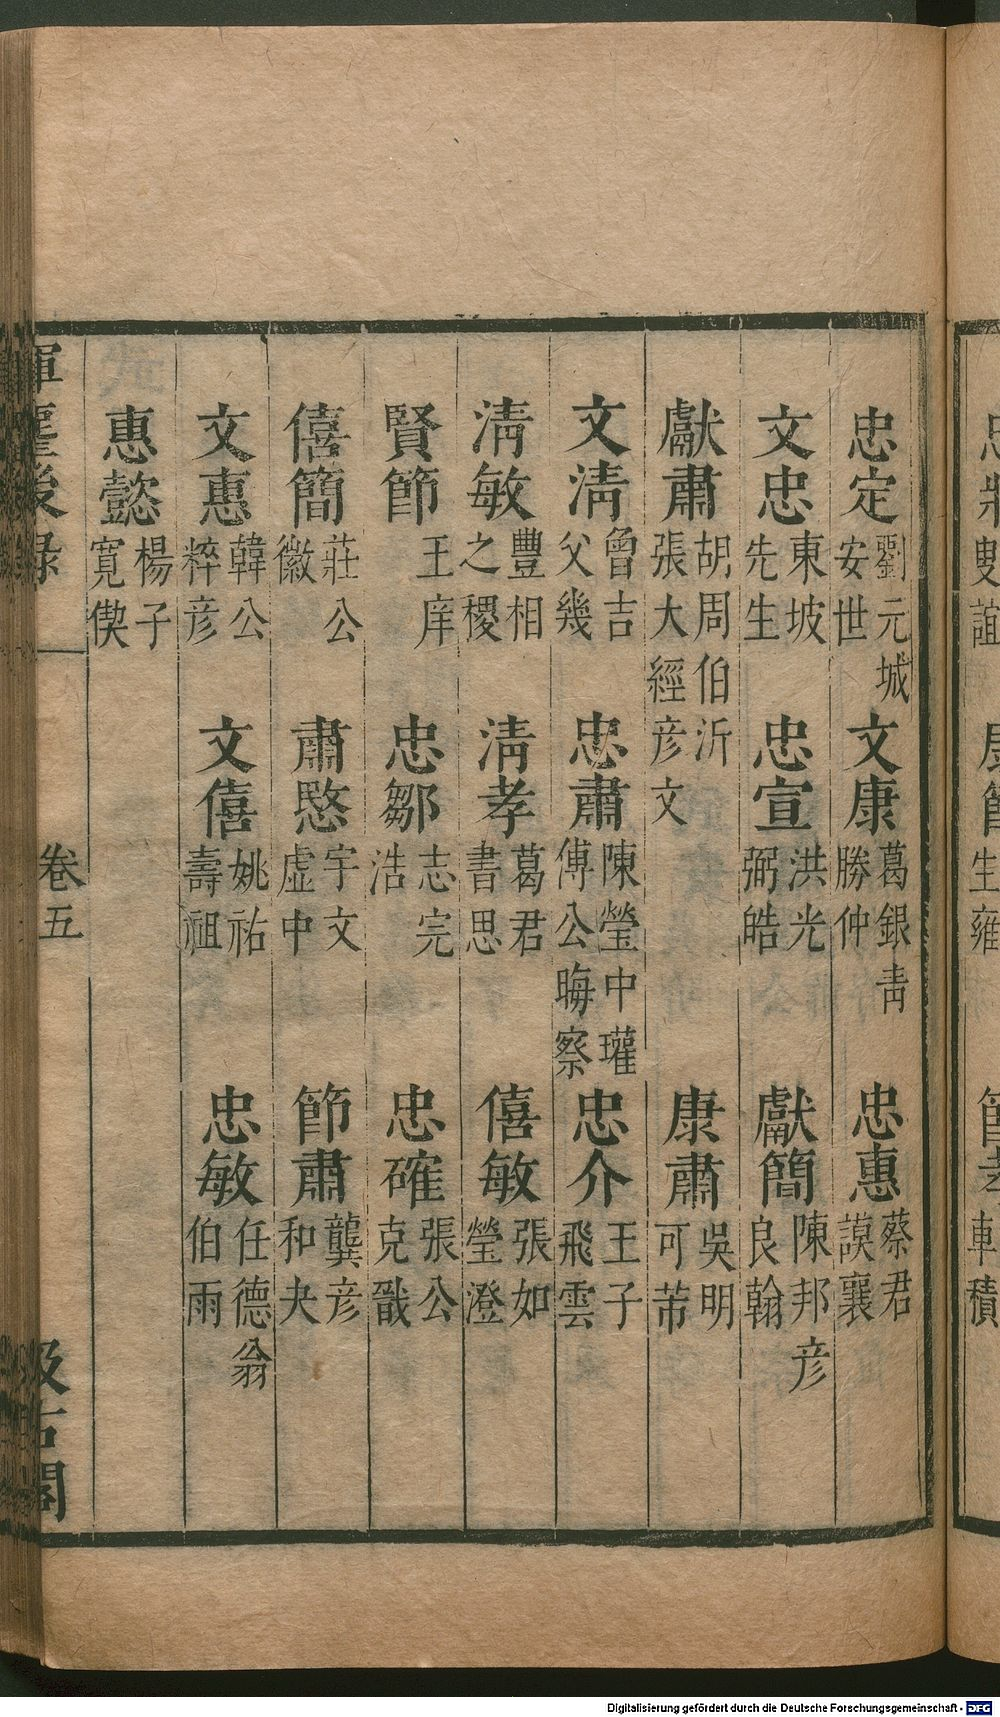 忠定劉元城安世　文康葛銀青勝仲　忠惠蔡君謨襄
文忠東坡先生　忠宣洪光弼皓　獻簡陳邦彥良翰
獻肅胡周伯沂張大經彥文　康肅吳明可芾
文清曾吉父幾　忠肅陳瑩中瓘傅公晦察　忠介王子飛雲
清敏豐相之稷　清孝葛君書思　僖敏張如瑩澄
賢節王庠　忠鄒志完浩　忠確張公克戩
僖簡莊公徽　肅愍宇文虛中　節肅龔彥和夬
文惠韓公粹彥　文僖姚祐壽祖　忠敏任德翁伯雨
惠懿楊子寬偰
揮麈後錄　卷五　汲古閣
Digitalisierung gefördert durch die Deutsche Forschungsgemeinschaft - DFG